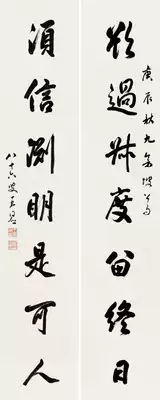 欲過叔度留終日
庚辰秋九集
須信淵明是可人
八十六叟王